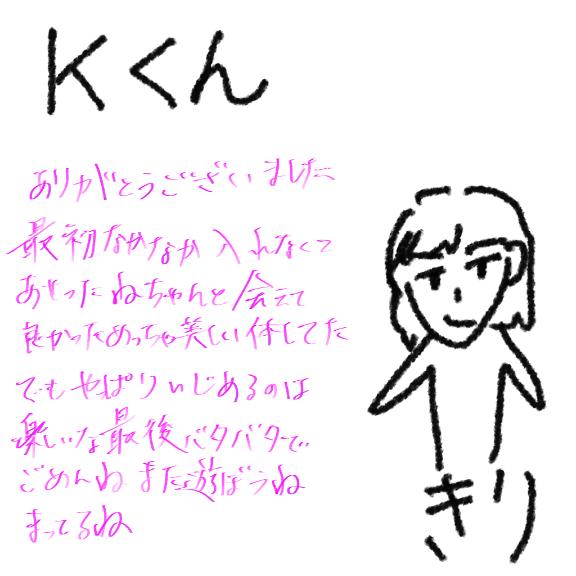 Kくん
ありがとうございました
最初なかなか入れなくて
あせったねちゃんと会えて
良かっためっちゃ美しい体してた
でもやっぱりいじめるのは
楽しいな最後バタバタで
ごめんねまた遊ぼうね
まってるね
きり